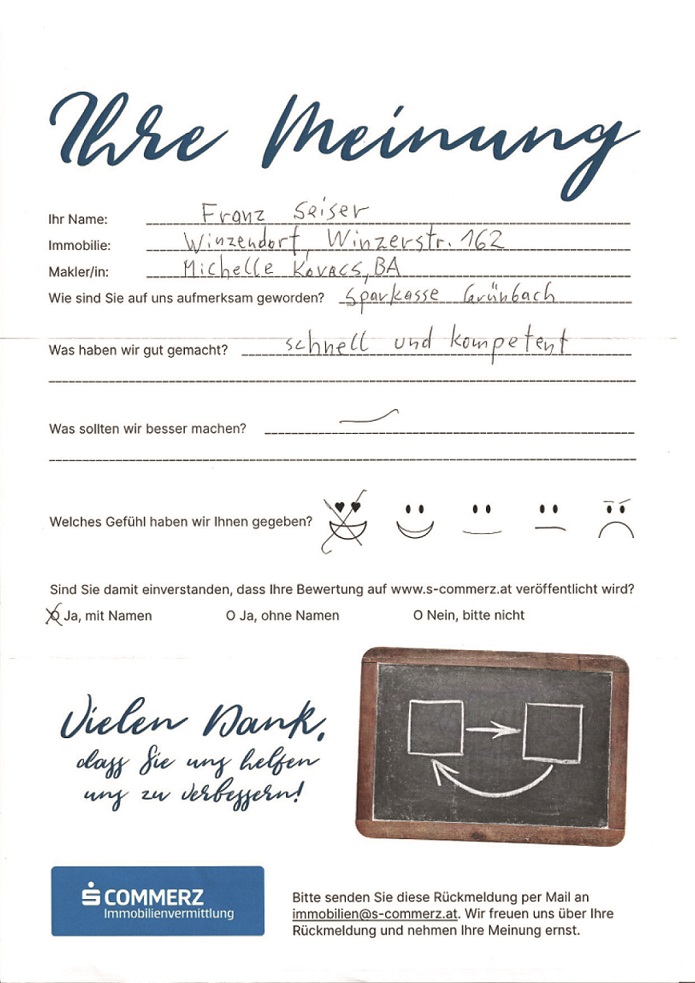 Ihre Meinung
Ihr Name: Franz Seiser
Immobilie: Winzendorf, Winzerstr. 162
Makler/in: Michelle Kovacs, BA
Wie sind Sie auf uns aufmerksam geworden? Sparkasse Grünbach
Was haben wir gut gemacht? schnell und kompetent
Was sollten wir besser machen?
Welches Gefühl haben wir Ihnen gegeben?
Sind Sie damit einverstanden, dass Ihre Bewertung auf www.s-commerz.at veröffentlicht wird?
O Ja, mit Namen O Ja, ohne Namen O Nein, bitte nicht
Vielen Dank,
dass Sie uns helfen
uns zu verbessern!
S COMMERZ
Immobilienvermittlung
Bitte senden Sie diese Rückmeldung per Mail an
immobilien@s-commerz.at. Wir freuen uns über Ihre
Rückmeldung und nehmen Ihre Meinung ernst.